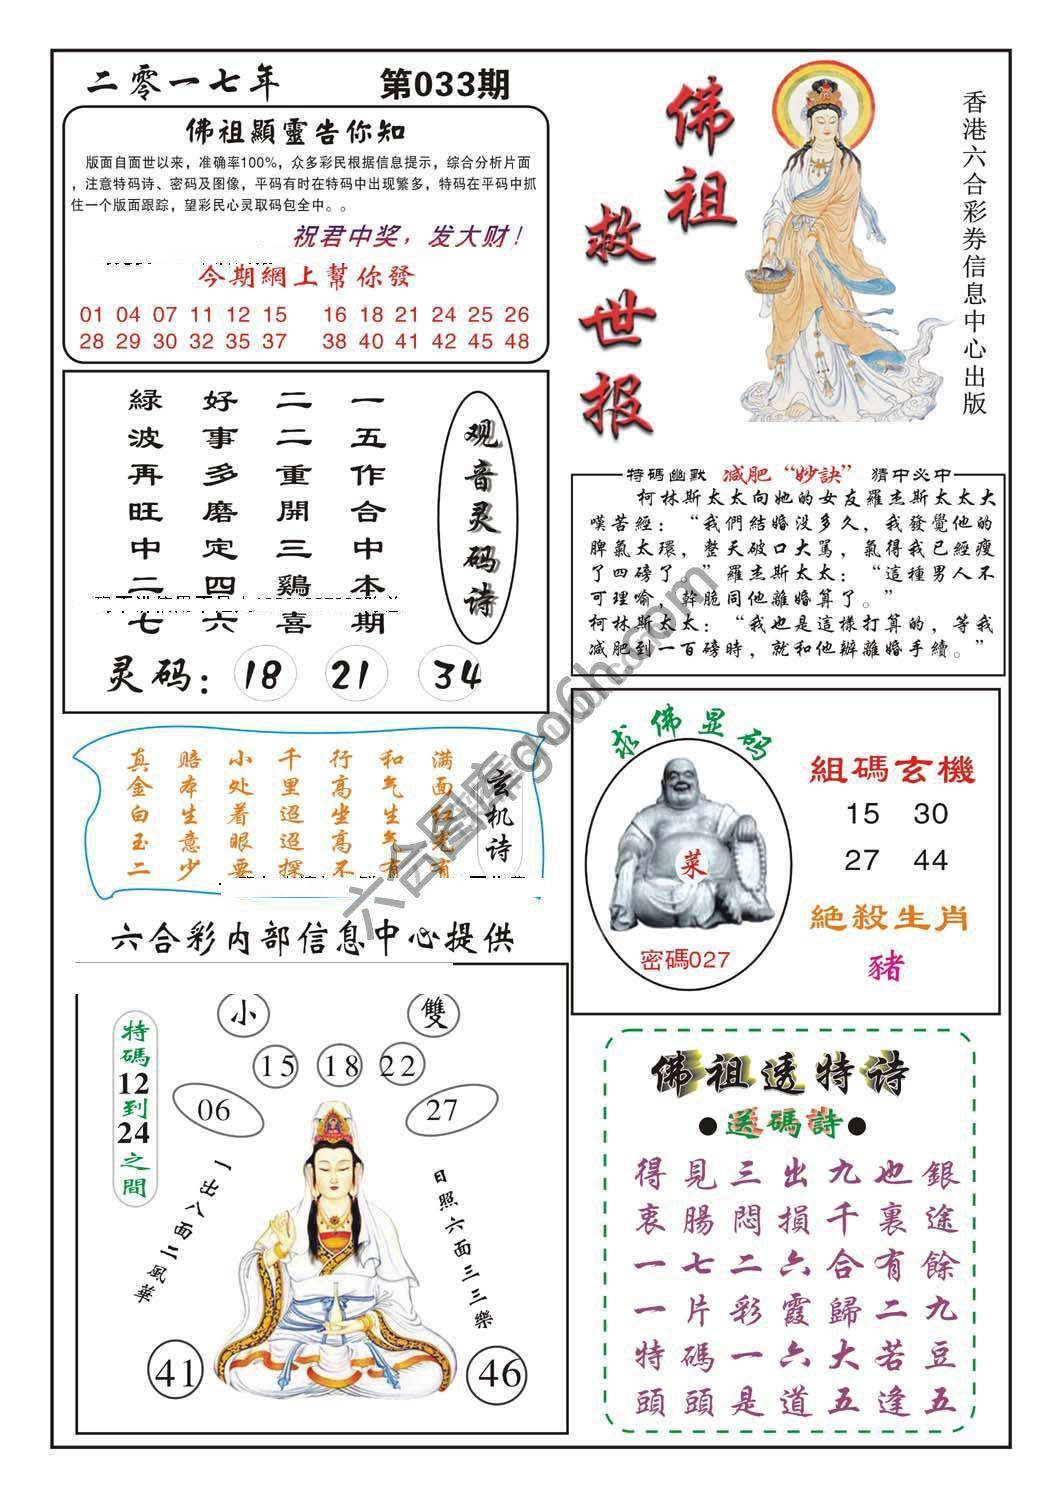 二零一七年
第033期
佛祖顯靈告你知
版面自面世以来，准确率100%，众多彩民根据信息提示，综合分析片面
，注意特码诗、密码及图像，平码有时在特码中出现繁多，特码在平码中抓
住一个版面跟踪，望彩民心灵取码包全中。。
祝君中奖，发大财！
今期網上幫你發
01 04 07 11 12 15 16 18 21 24 25 26
28 29 30 32 35 37 38 40 41 42 45 48
佛祖
救世报
香港六合彩券信息中心出版
观音灵码诗
一五作合中本期
二二重開三鷄喜
好事多磨定四六
緑波再旺中二七
灵码： 18 21 34
特碼幽默 减肥“妙訣” 猜中必中
柯林斯太太向她的女友羅杰斯太太大
嘆苦經：“我們結婚没多久，我發覺他的
脾氣太環，整天破口大罵，氣得我已經瘦
了四磅了。”羅杰斯太太：“這種男人不
可理喻，幹脆同他離婚算了。”
柯林斯太太：“我也是這樣打算的，等我
减肥到一百磅時，就和他辦離婚手續。”
玄机诗
满面红光有
和气生气有
行高坐高不
千里迢迢探
小处着眼要
赔本生意少
真金白玉二
六合彩内部信息中心提供
求佛显码
菜
密碼027
組碼玄機
15 30
27 44
絕殺生肖
豬
小 雙
15 18 22
06 27
特碼12到24之間
一出八面二風華
日照六面三三樂
41 46
佛祖透特诗
●送碼詩●
得見三出九也銀
衷腸悶損千裏途
一七二六合有餘
一片彩霞歸二九
特碼一六大若豆
頭頭是道五逢五
六合图库go6h.com